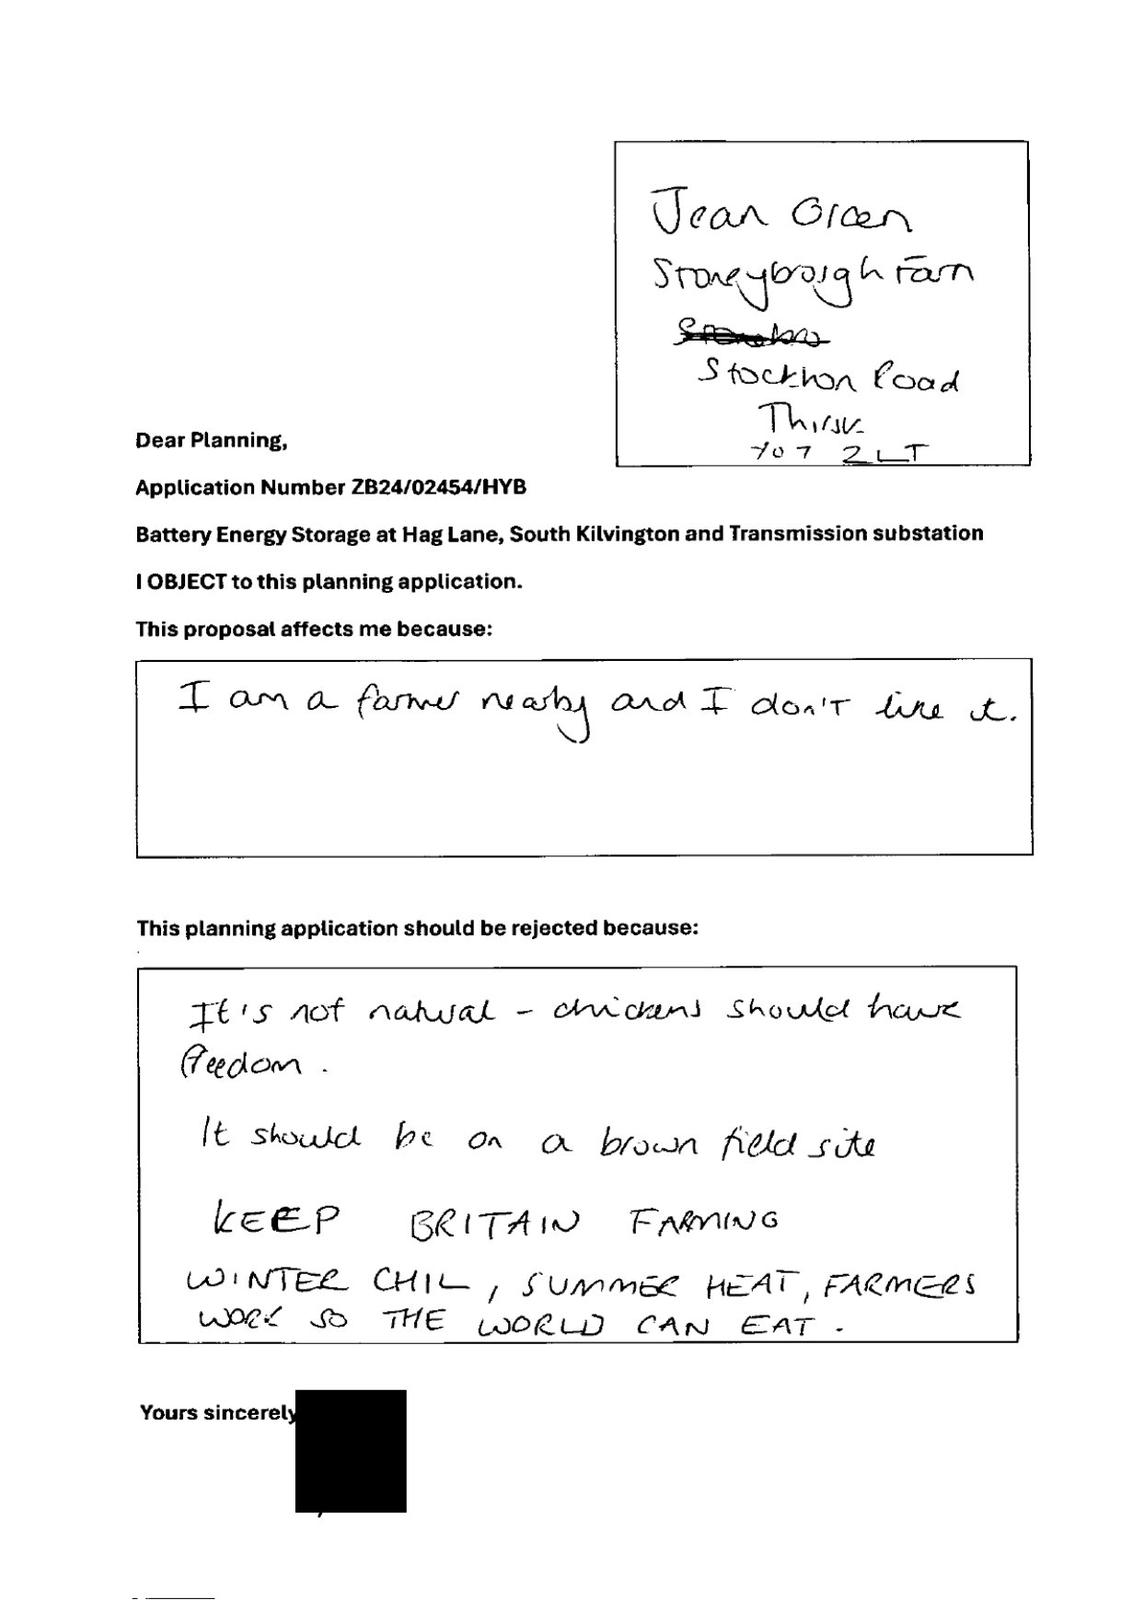 Jean Green
Stoneybrough Farm
Stockton Road
Thirsk
YO7 2LT
Dear Planning,
Application Number ZB24/02454/HYB
Battery Energy Storage at Hag Lane, South Kilvington and Transmission substation
I OBJECT to this planning application.
This proposal affects me because:
I am a farmer nearby and I don't like it.
This planning application should be rejected because:
It's not natural - chickens should have
freedom.
It should be on a brown field site
KEEP BRITAIN FARMING
WINTER CHIL, SUMMER HEAT, FARMERS
WORK SO THE WORLD CAN EAT.
Yours sincerely